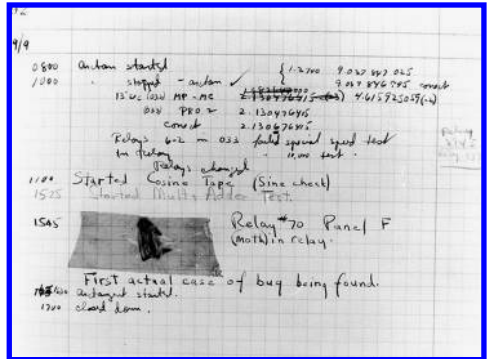 9/9
0800 antan started { 1.2700 9.037 847 025
1000 " stopped - antan ✓ 9.037 846 995 correct
13"uc (032) MP - MC 2.130476415 (-3) 4.615925059(-2)
(033) PRO 2 2.130476415
correct 2.130676415
Relays 6-2 in 033 failed special speed test
in relay " 10,000 test.
Relays changed
1100 Started Cosine Tape (Sine check)
1525 Started Mult+Adder Test.
1545 Relay #70 Panel F
(moth) in relay.
First actual case of bug being found.
antangent started.
1700 closed down.